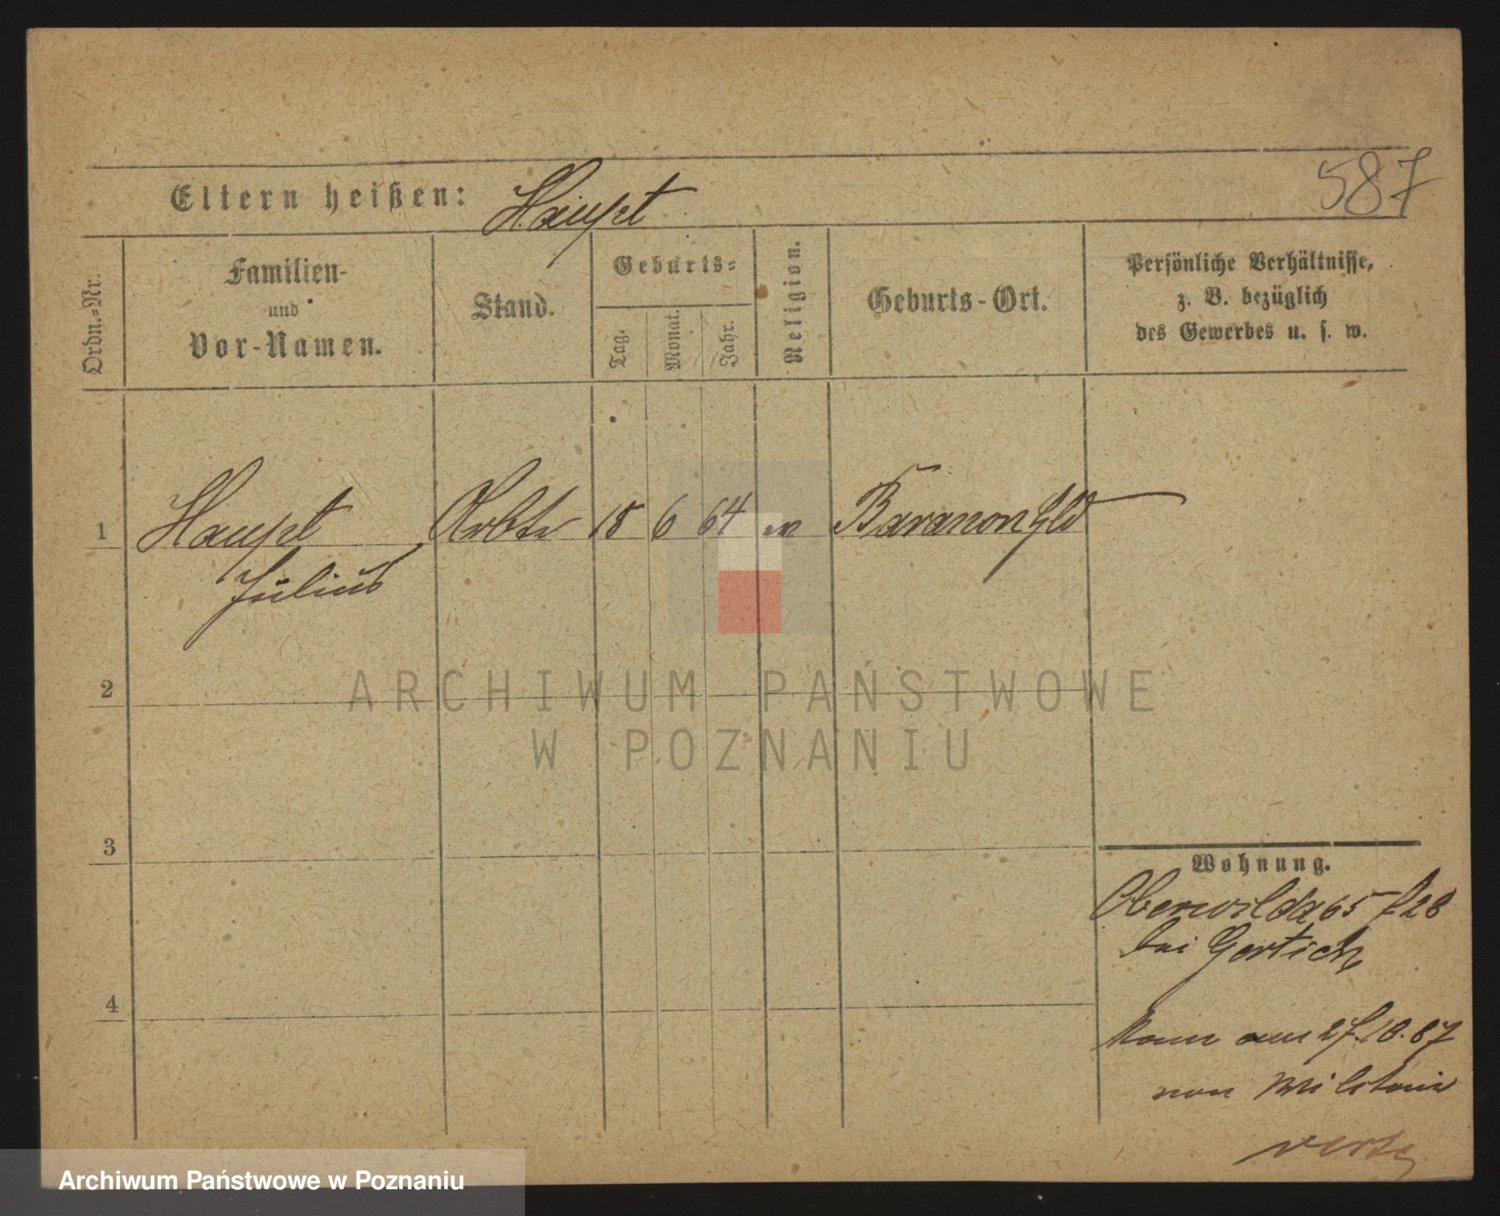 587
Eltern heißen: Haupt
Ordn.-Nr.
Familien-
und
Vor-Namen.
Stand.
Geburts-
Tag.
Monat.
Jahr.
Religion.
Geburts-Ort.
Persönliche Verhältnisse,
z. B. bezüglich
des Gewerbes u. s. w.
1 Haupt Arbtr 18 6 64 ev
Julius
2
ARCHIWUM PAŃSTWOWE
W POZNANIU
3
Wohnung.
Oberwilda 65
bei Gertich
4
am 27.10.87
von Militair
Archiwum Państwowe w Poznaniu